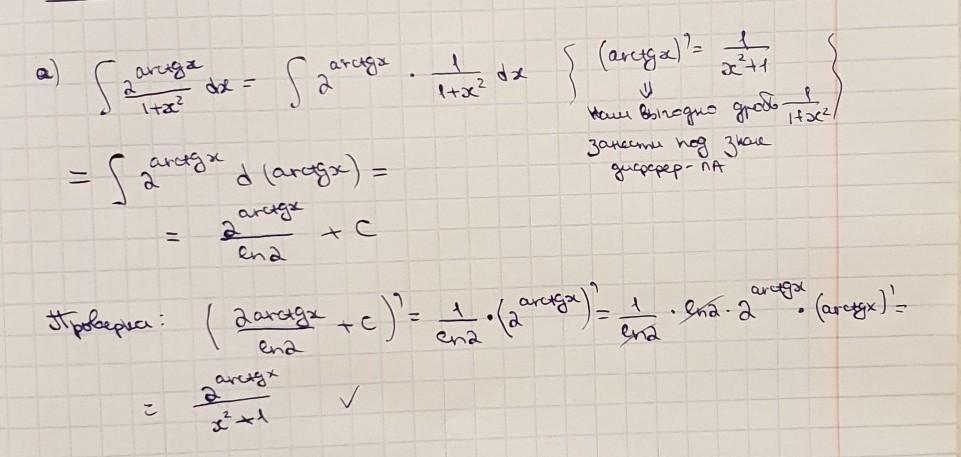 а) ∫ 2^{arctgx}/(1+x²) dx = ∫ 2^{arctgx} · 1/(1+x²) dx { (arctgx)' = 1/(x²+1)
⇓
нам выгодно дробь 1/(1+x²) }
занести под знак
диффер-ЛА
= ∫ 2^{arctgx} d(arctgx) =
= 2^{arctgx}/ln2 + C
Проверка: (2arctgx/ln2 + C)' = 1/ln2 · (2^{arctgx})' = 1/ln2 · ln2 · 2^{arctgx} · (arctgx)' =
= 2^{arctgx}/(x²+1) ✓